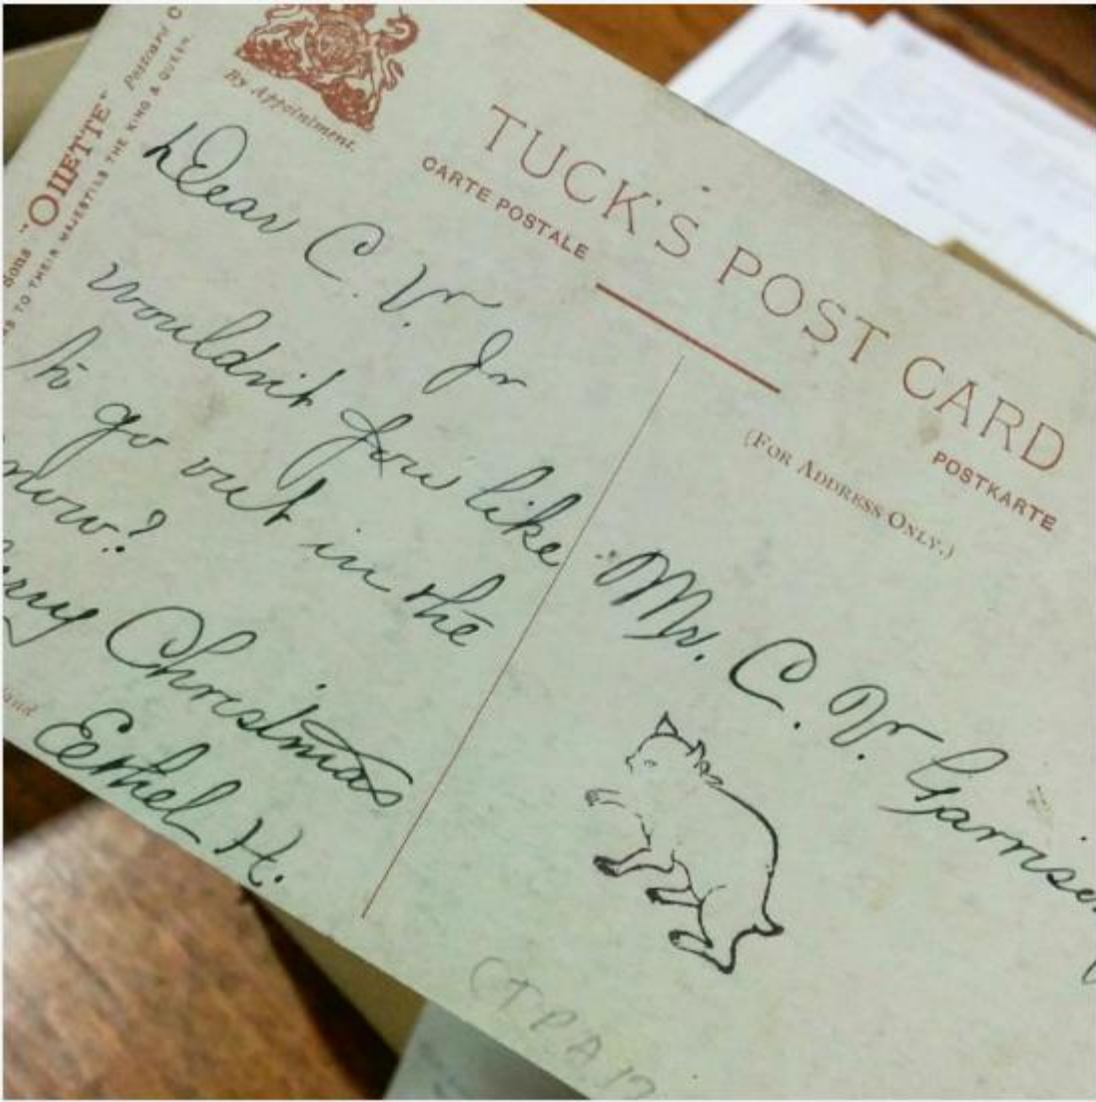 Postcard
"OILETTE"
TO THEIR MAJESTIES THE KING & QUEEN.
By Appointment.
TUCK'S POST CARD
CARTE POSTALE
POSTKARTE
(FOR ADDRESS ONLY.)
Dear C. V. Jr
wouldn't you like
to go out in the
now?
Christmas
Eethel H.
Mr. C. V. Garrison